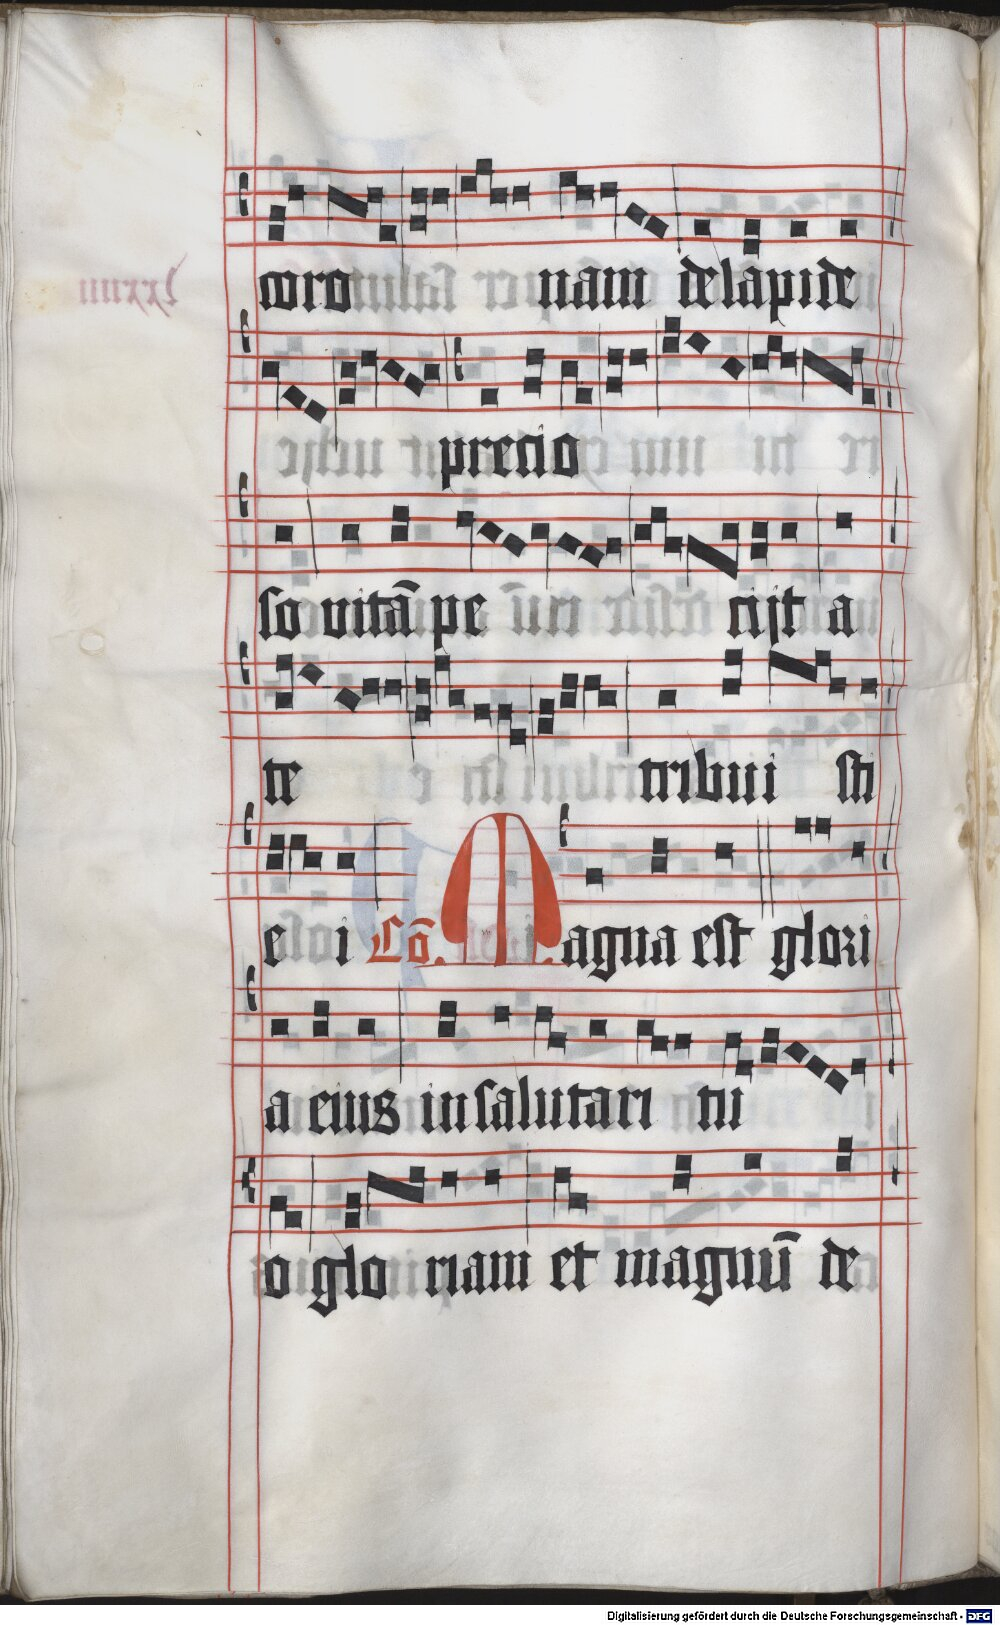 coro nam de lapide
precio
so vitā pe cijt a
te tribui sti
e i Cō. Magna est glori
a eius in salutari tu
o glo riam et magnū de
Digitalisierung gefördert durch die Deutsche Forschungsgemeinschaft - DFG